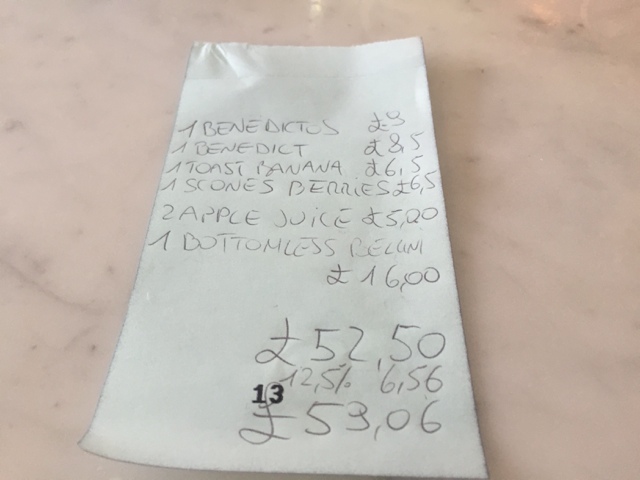 1 BENEDICTOS £9
1 BENEDICT £8,5
1 TOAST BANANA £6,5
1 SCONES BERRIES £6,5
2 APPLE JUICE £5,00
1 BOTTOMLESS BELLINI
£16,00
£52,50
12,5% 6,56
13
£59,06